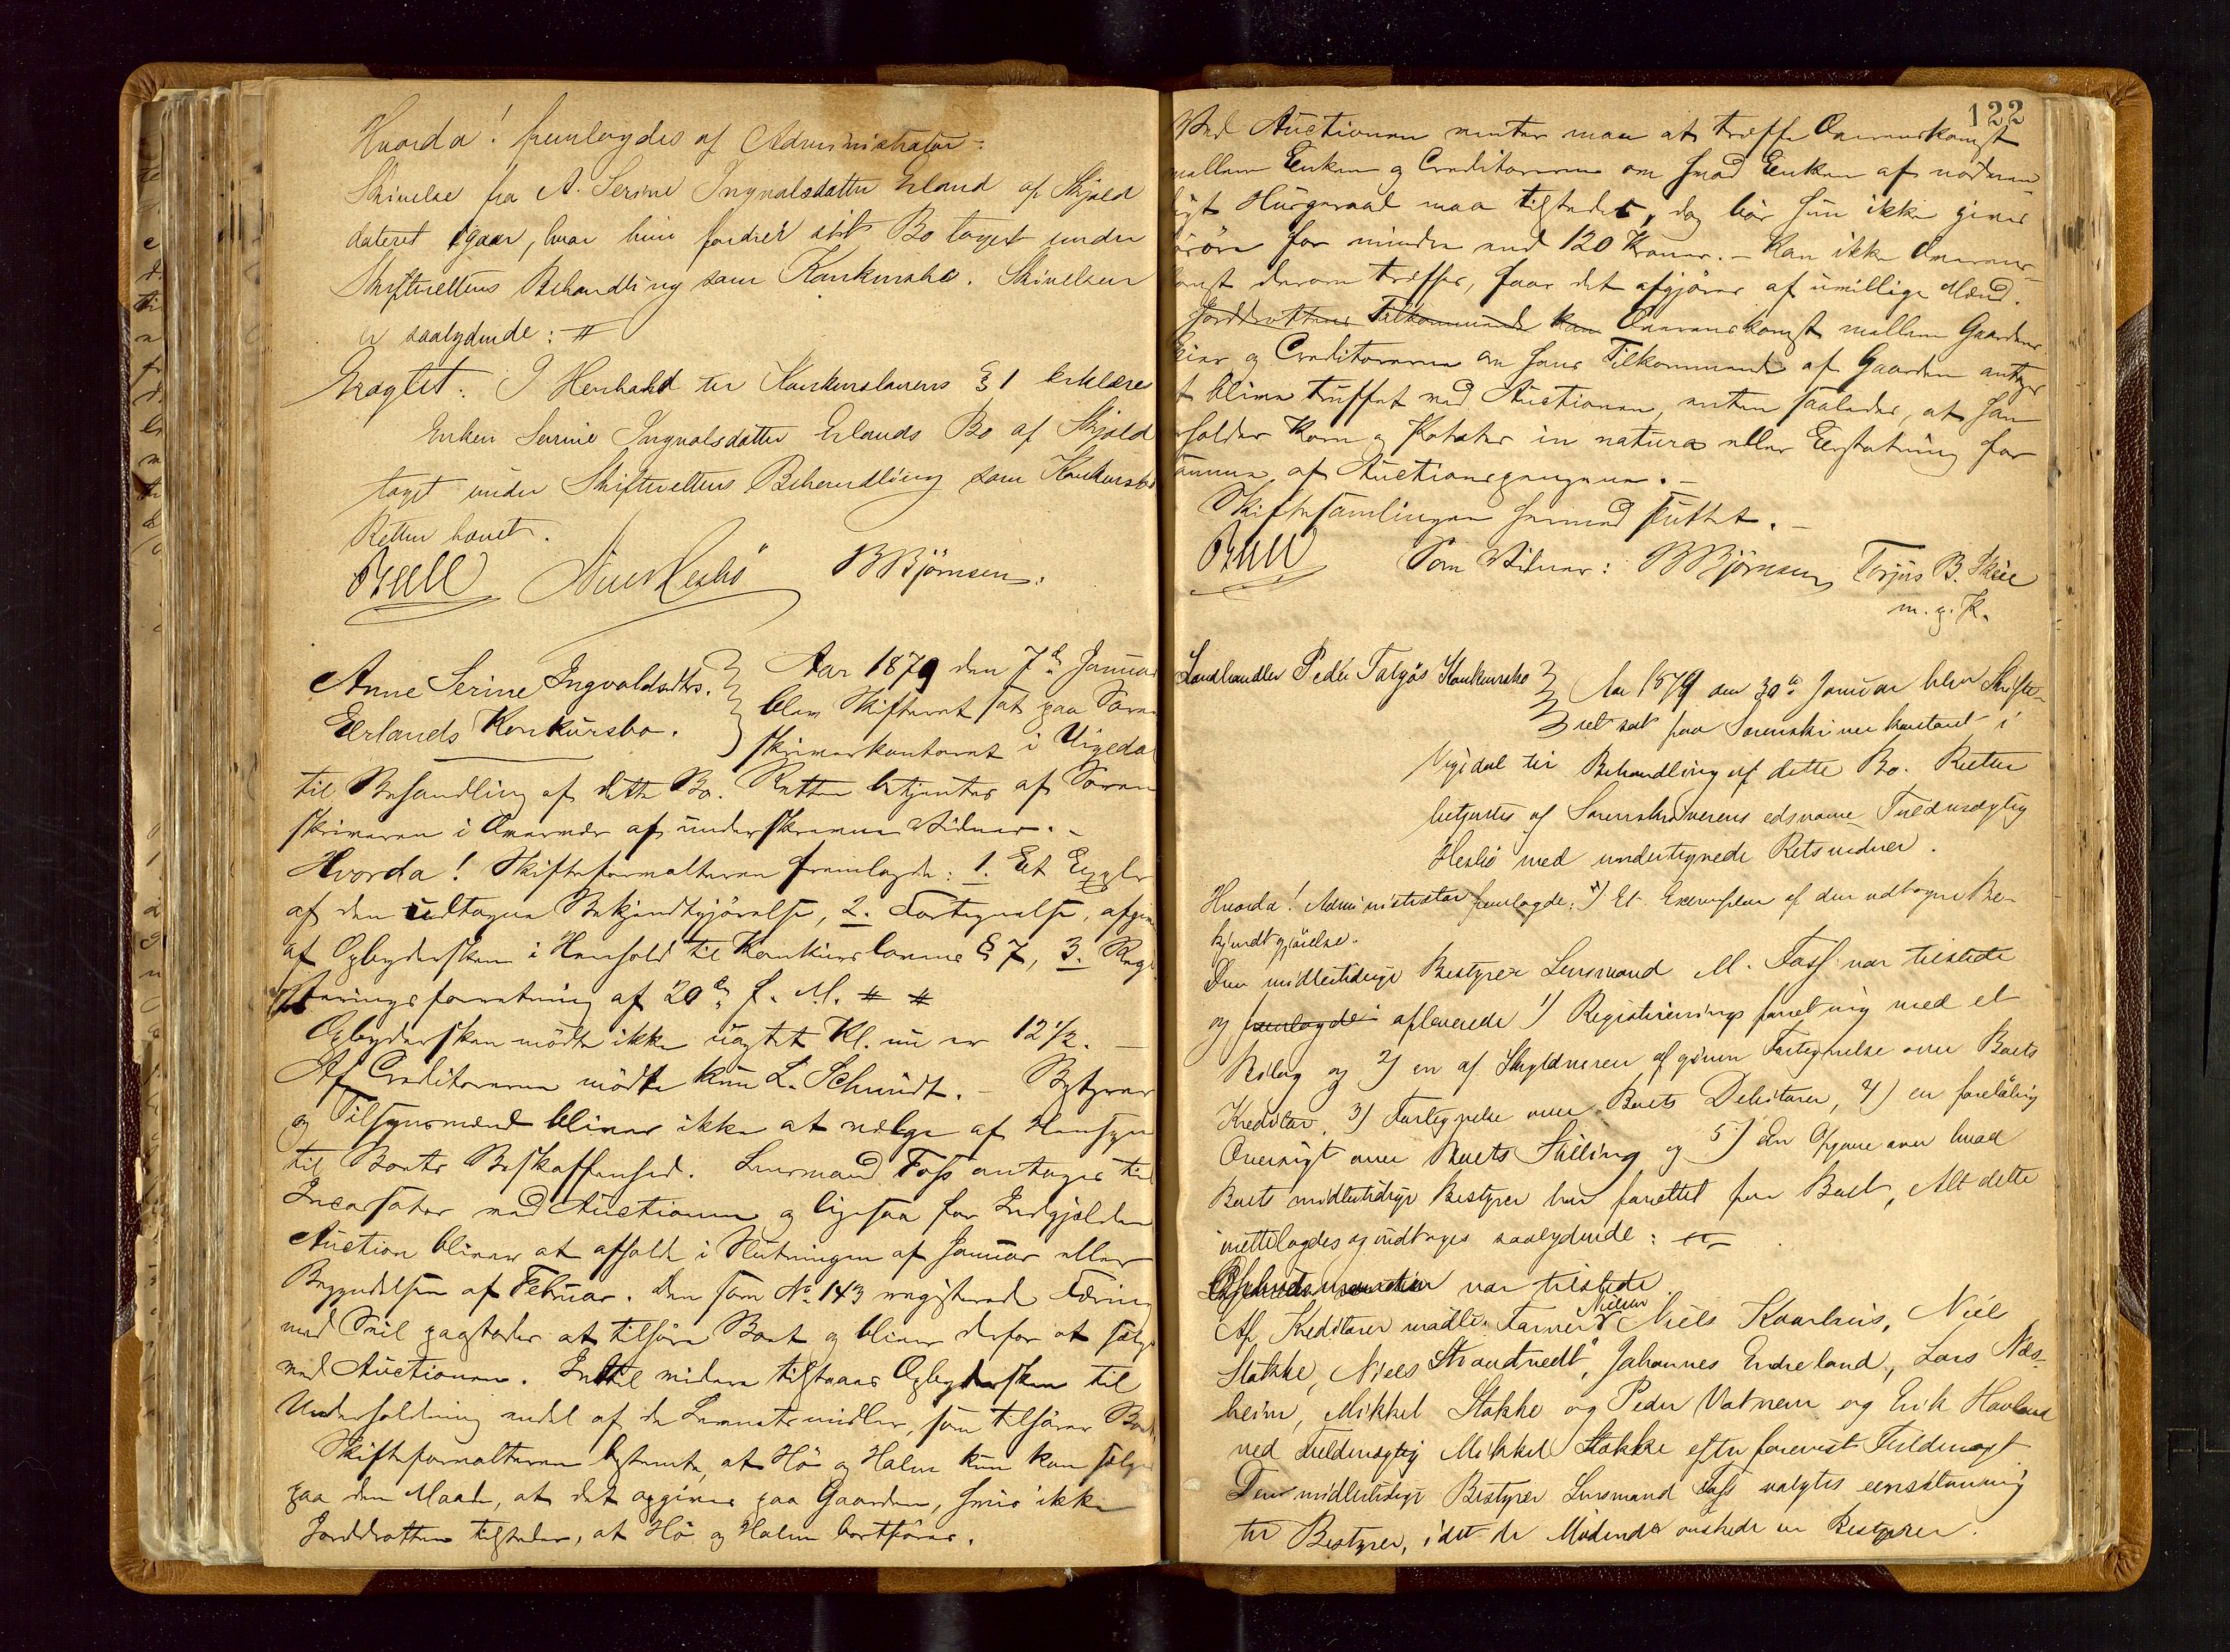 Hvorda! fremlagdes af Administrator:
Skrivelse fra A. Serine Ingvalsdatter Erland af Skjold
dateret igaar, hvor hun fordrer sit Bo taget under
Skifterettens Behandling som Konkursbo. Skrivelsen
er saalydende: #
Eragtet. I Henhold til Konkurslovens § 1 erklæres
Enken Serine Ingvalsdatter Erlands Bo af Skjold
taget under Skifterettens Behandling som Konkursbo
Retten hævet.
Brull Heskö B Bjørnsen.
Anne Serine Ingvaldsdtrs.
Erlands Konkursbo.
Aar 1879 den 7de Januar
blev Skifteret sat paa Soren-
skriverkontoret i Vigedal
til Behandling af dette Bo. Retten betjentes af Soren
skriveren i Overvær af underskrevne Vidner. -
Hvorda! Skifteforvalteren fremlagde: 1. Et Explr
af den udtagne Bekjendtgjørelse, 2. Fortegnelse, afgiven
af Opbydersken i Henhold til Konkurslovens § 7, 3. Regi
streringsforretning af 20de f. M. # #
Opbydersken mødte ikke uagtet Kl. nu er 12 1/2. -
Af Creditorerne mødte kun L. Schmidt. - Bestyrer
og Tilsynsmænd bliver ikke at vælge af Hensyn
til Boets Beskaffenhed. Lensmand Foss antages til
Incassator ved Auctionen og ligesaa for Indgjælden
Auction bliver at afholde i Slutningen af Januar eller
Begyndelsen af Februar. Den som No. 143 registrerede Færing
med Seil paastodes at tilhøre Boet og bliver derfor at sælge
ved Auctionen. Indtil videre tilstaaes Opbydersken til
Underholdning endel af de Levnetsmidler, som tilhører Boet.
Skifteforvalteren bestemte, at Hö og Halm kun kan sælges
paa den Maade, at det opgives paa Gaarden, hvis ikke
Jorddrotten tilsteder, at Hö og Halm bortføres.
122
Ved Auctionen venter man at træffe Overenskomst
mellem Enken og Creditorerne om hvad Enken af nødven-
ligt Husgeraad maa tilstedes, dog bør hun ikke gives
for mindre end 120 Kroner. - Kan ikke Overens-
komst derom træffes, faar det afgjøres af uvillige Mænd.
Jorddrottens Tilkommende kan Overenskomst mellem Gaardens
Eier og Creditorerne om hans Tilkommende af Gaarden antages
at blive truffet ved Auctionen, enten saaledes, at han
holder Korn og Poteter in natura eller Erstatning for
samme af Auctionspengene. -
Skiftesamlingen hermed sluttet. -
Brull Som Vidner: B Bjørnsen Torjus B. Skeie
m. p. P.
Landhandler Peder Talgös Konkursbo
Aar 1879 den 30te Januar blev Skifte-
ret sat paa Sorenskriverkontoret i
Vigedal til Behandling af dette Bo. Retten
betjentes af Sorenskriverens edsvorne Fuldmægtig
Heskö med undertegnede Retsvidner.
Hvorda! Administrator fremlagde: 1) Et Exemplar af den udtagne Be-
kjendtgjørelse.
Den midlertidige Bestyrer Lensmand M. Foss var tilstede
og fremlagde afleverede 1) Registreringsforretning med et
Bilag og 2) en af Skyldneren afgiven Fortegnelse over Boets
Kreditor, 3) Fortegnelse over Boets Debitorer, 4) en foreløbig
Oversigt over Boets Stilling og 5) En Opgave over hvad
Boets midlertidige Bestyrer har forrettet for Boet, Alt dette
vettelagdes og indtages saalydende: #
var tilstede.
Af Kreditorer mødte: Nielsen Niels Kaarhus, Niels
Stakke, Niels Strandvedt, Johannes Endreland, Lars Næs-
heim, Mikkel Stakke og Peder Vatnem og Erik Havland
ved Fuldmægtig Mikkel Stakke efter forevist Fuldmagt
Den midlertidige Bestyrer Lensmand Foss valgtes eenstemmig
til Bestyrer, idet de Mødende ønskede en Bestyrer.